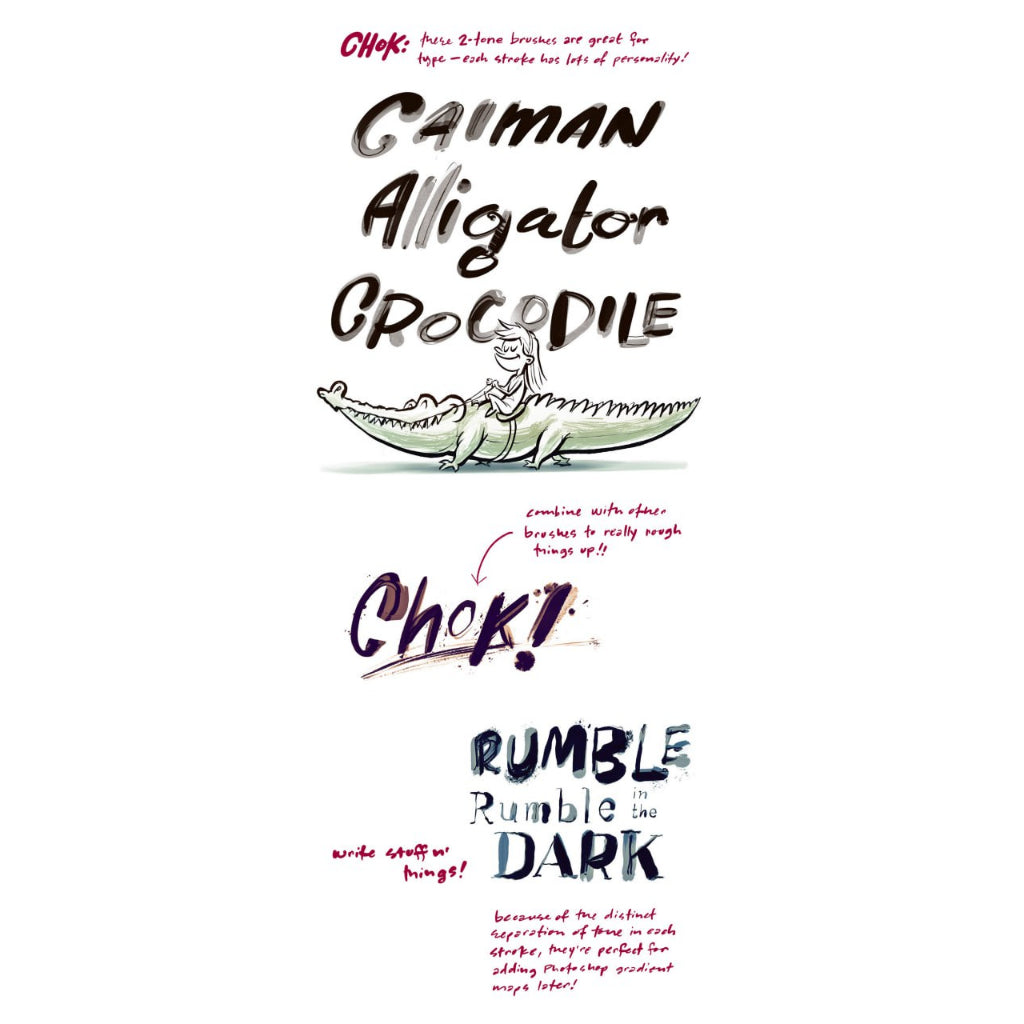 CHOK: these 2-tone brushes are great for
type – each stroke has lots of personality!
CAIMAN
Alligator
CROCODILE
combine with other
brushes to really rough
things up!!
Chok!
RUMBLE
Rumble in the
DARK
write stuff n'
things!
because of the distinct
separation of tone in each
stroke, they're perfect for
adding Photoshop gradient
maps later!